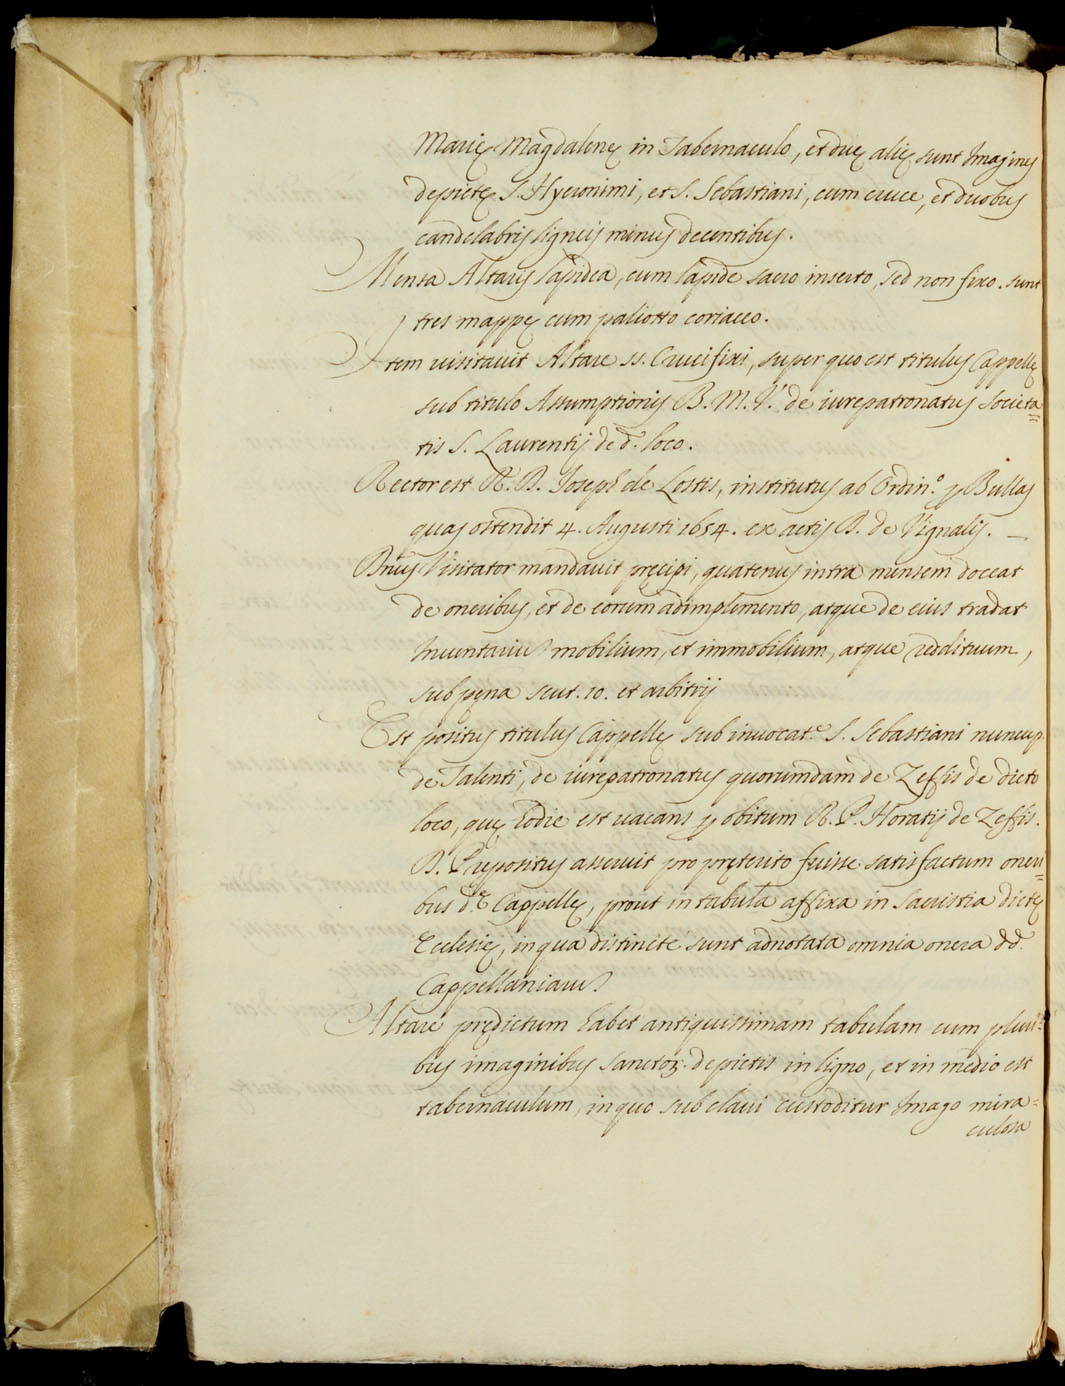 Marię Magdalenę in Tabernaculo, et duę alię sunt Imagines
depictę S. Hyeronimi, et S. Sebastiani, cum cruce, et duobus
candelabris ligneis minus decentibus.
Mensa Altaris lapidea, cum lapide sacro inserto, sed non fixo. sunt
tres mappę cum paliotto coriaceo.
Item visitavit Altare SS. Crucifixi, super quo est titulus Cappellę
sub titulo Assumptionis B. M. V. de iurepatronatus Societa=
tis S. Laurentij de d.º loco.
Rector est R. D. Joseph de Lostis, institutus ab Ordin.º p Bullas
quas ostendit 4. Augusti 1654. ex actis D. de Vignalis. —
Dnus Visitator mandavit pręcipi, quatenus intra mensem doceat
de oneribus, et de eorum adimplimento, atque de eius tradat
Inventariu mobilium, et immobilium, atque reddituum,
sub pęna scut. 10. et arbitrij
Est positus titulus Cappellę sub invocat.e S. Sebastiani nuncup.
de Talenti, de iurepatronatus quorumdam de Zeffis de dicto
loco, quę hodie est vacans p obitum R. P. Horatij de Zeffis.
D. Prepositus asseruit pro pręterito fuisse satisfactum oneri=
bus d.ę Cappellę, prout in tabula affixa in Sacristia dictę
Eclesię, in qua distincte sunt adnotata omnia onera dd.
Cappellaniaru
Altare prędictum habet antiquissimam tabulam cum pluri=
bus imaginibus Sanctoꝝ depictis in ligno, et in medio est
tabernaculum, in quo sub clavi custoditur Imago mira=
culosa